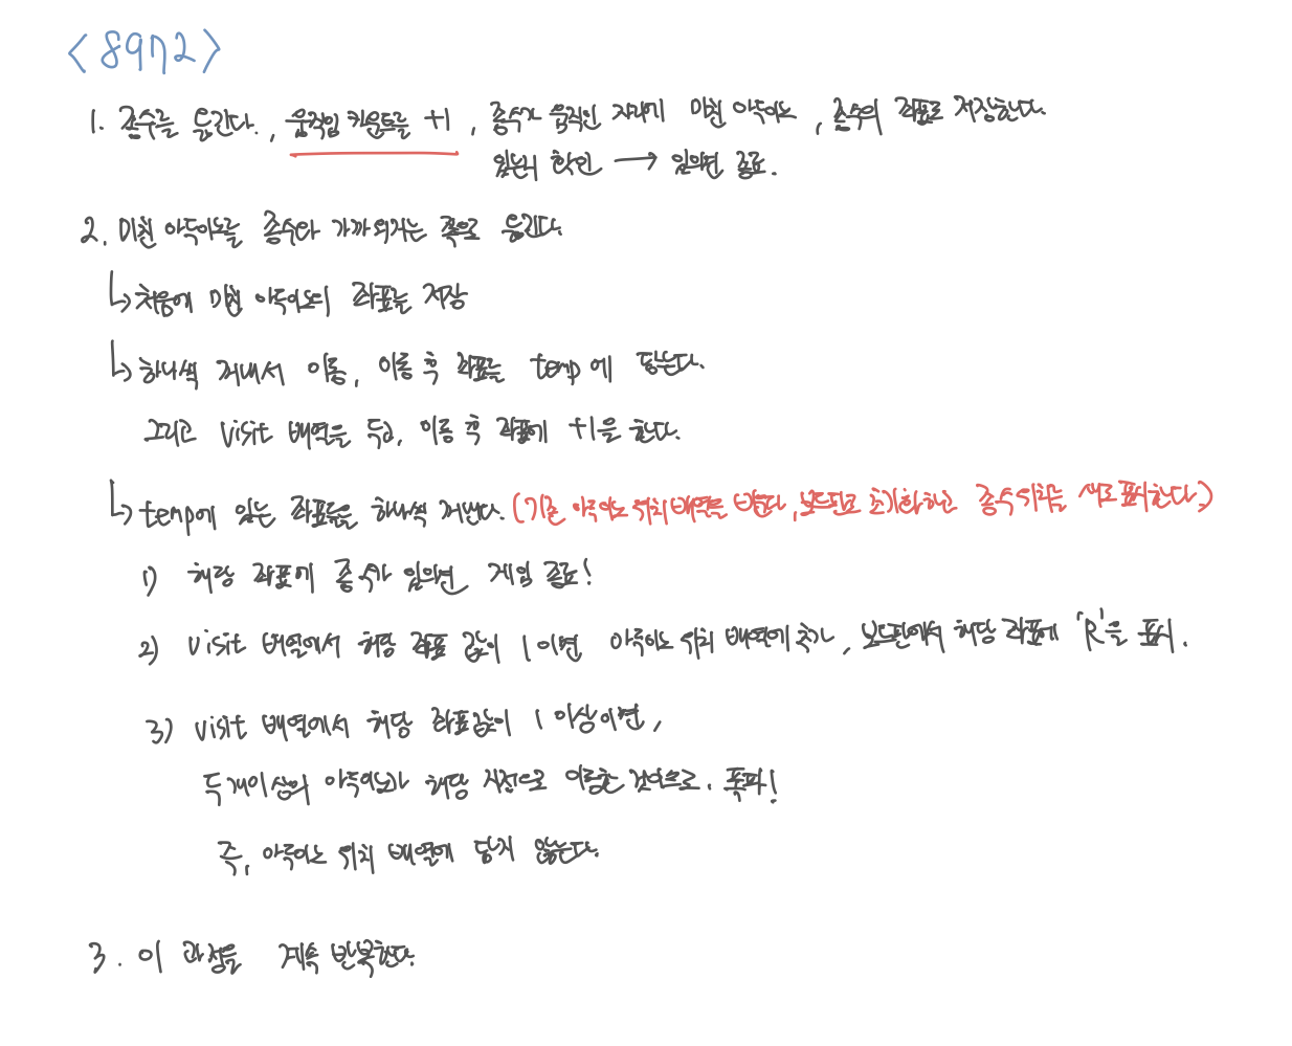 <8972>
1. 종수를 옮긴다., 움직임 카운트를 +1, 종수가 움직인 자리에 미친 아두이노, 종수의 좌표로 저장한다.
있는지 확인 → 있으면 종료.
2. 미친 아두이노를 종수와 가까워지는 쪽으로 옮긴다.
↳ 처음에 미친 아두이노의 좌표를 저장
↳ 하나씩 꺼내서 이동, 이동 후 좌표를 temp에 담는다.
그리고 visit 배열을 두고, 이동 후 좌표에 +1을 한다.
↳ temp에 있는 좌표들을 하나씩 꺼낸다. (기존 아두이노 위치 배열을 비운다, 보드판도 초기화하고 종수 위치를 새로 표시한다)
1) 해당 좌표에 종수가 있으면 게임 종료!
2) visit 배열에서 해당 좌표 값이 1이면 아두이노 위치 배열에 추가, 보드판에서 해당 좌표에 'R'을 표시.
3) visit 배열에서 해당 좌표값이 1 이상이면,
두 개 이상의 아두이노가 해당 지점으로 이동한 것이므로. 폭파!
즉, 아두이노 위치 배열에 담지 않는다.
3. 이 과정을 계속 반복한다.